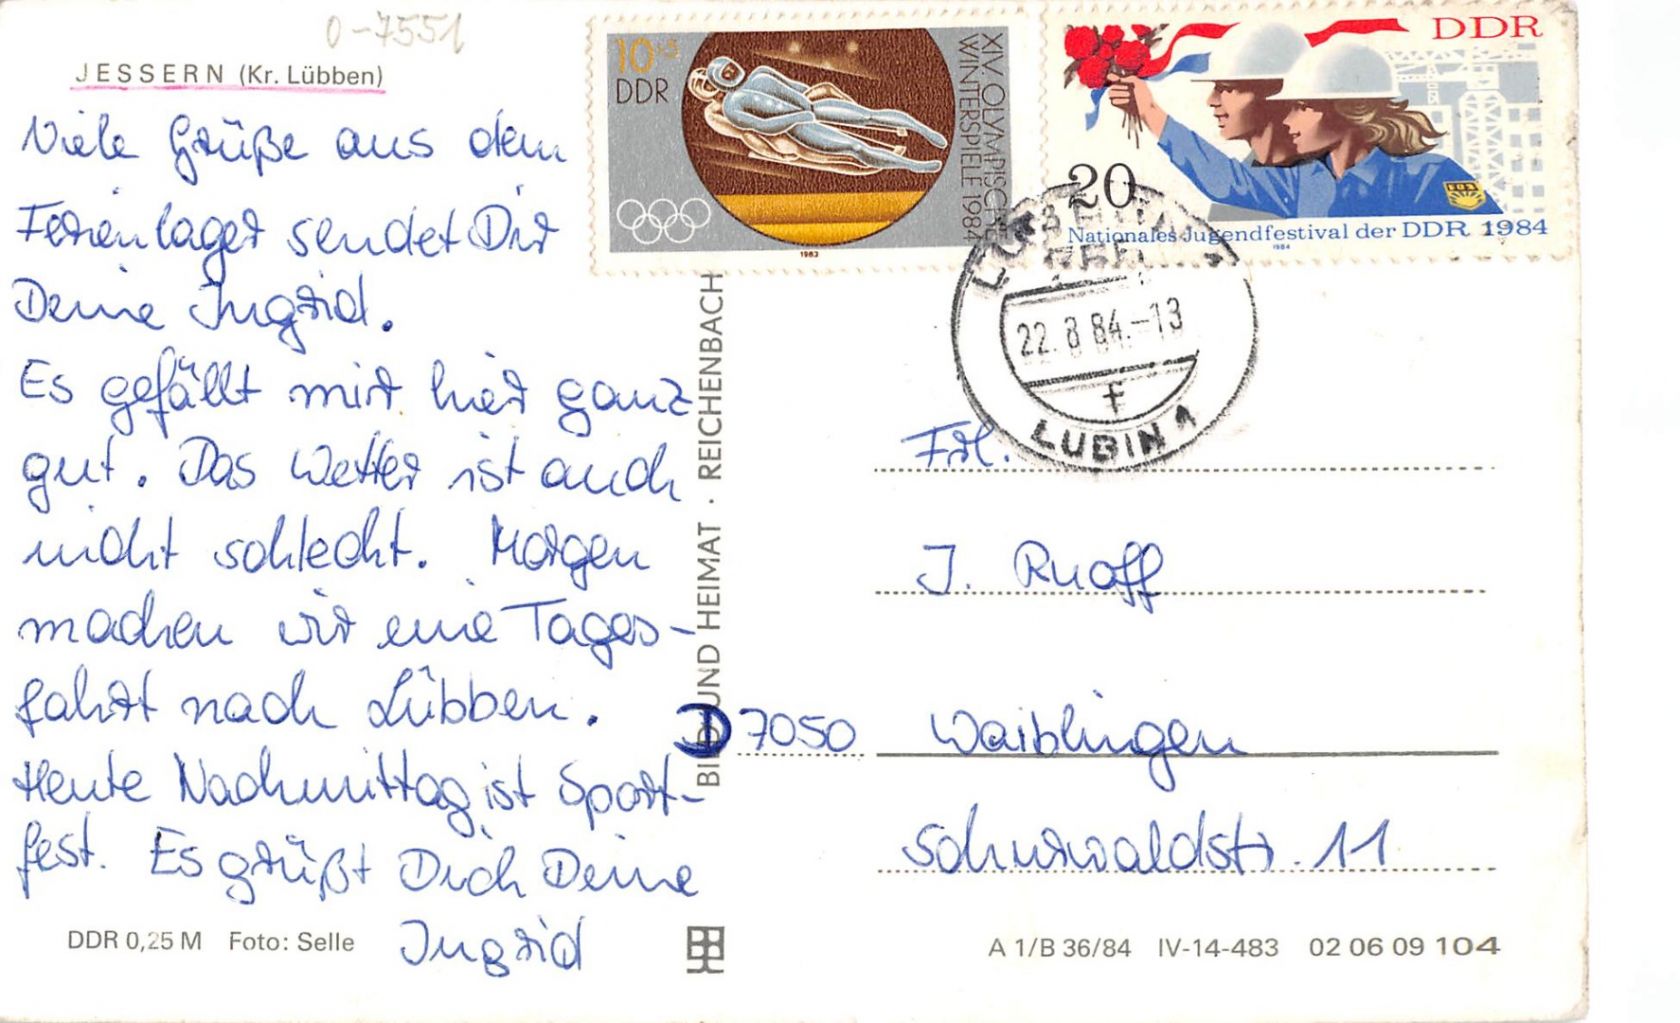 0-7551
JESSERN (Kr. Lübben)
Viele Grüße aus dem
Ferienlager sendet Dir
Deine Ingrid.
Es gefällt mir hier ganz
gut. Das Wetter ist auch
nicht schlecht. Morgen
machen wir eine Tages-
fahrt nach Lübben.
Heute Nachmittag ist Sport-
fest. Es grüßt Dich Deine
Ingrid
DDR 0,25 M Foto: Selle
BILD UND HEIMAT · REICHENBACH
10+5
DDR
XIV. OLYMPISCHE
WINTERSPIELE 1984
1983
DDR
20
FDJ
Nationales Jugendfestival der DDR 1984
1984
22.8.84.-13
LUBIN 1
Frl.
J. Ruoff
D 7050 Waiblingen
Schurwaldstr. 11
A 1/B 36/84 IV-14-483 02 06 09 104